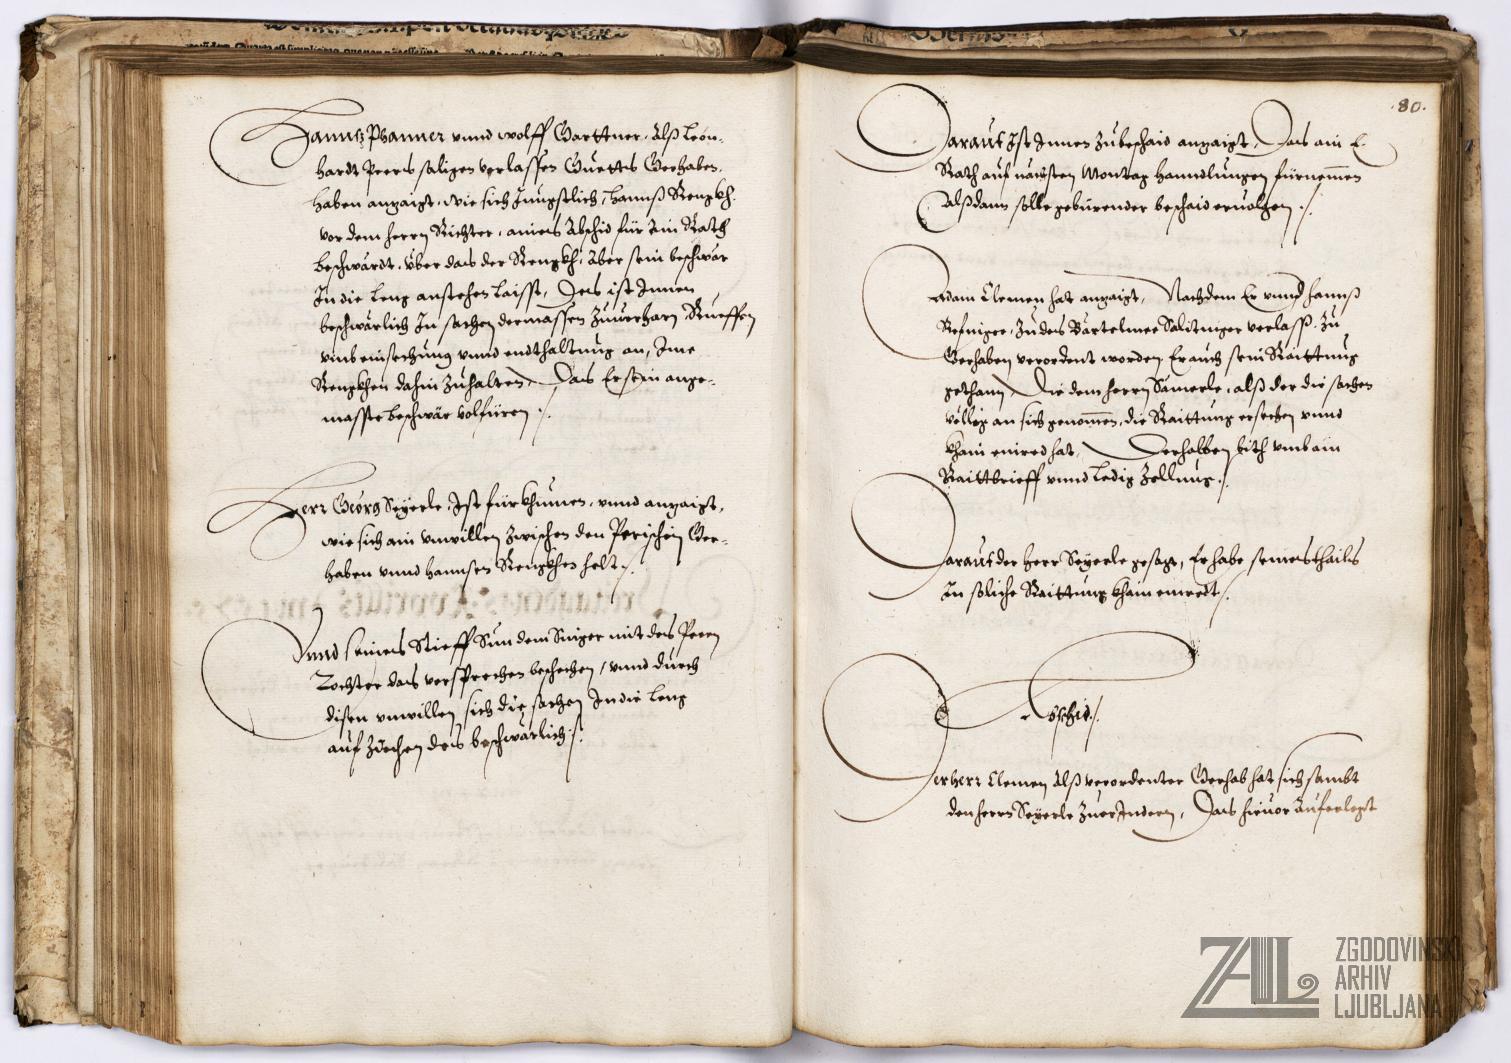 Hannß Phanner vnnd Wolff Garttner, Alß Leon-
hardt Peers saligen verlassen Guetts Gerhaben,
haben anzaigt, wie sich Jungstlich, Hannß Rengkh.
vor dem herrn Richter, aines Abschid für Ain Rath
beschwärdt, über das der Rengkh, Aber sein beschwär
In die leng anstehen laisst, Das ist Innen
beschwärlich In sachen dermassen Zuuerharn, Rueffen
vmb einsechung vnnd endthaltung an, Ime
Rengkhen dahin Zuhalten, Das Er sein ange-
masste beschwär volfüren ./.
Herr Georg Seyerle, Ist fürkhumen, vnnd anzaigt,
wie sich ain vnwillen zwischen den Perischen Ger-
haben vnnd Hannsen Rengkhen helt ./.
Vnnd seines Stieff Sun dem Siniger mit des Peern
Tochter das versprechen beschechen, vnnd durch
disen vnwillen sich die sachen In die leng
auf Ziechen des beschwärlich ./.
.80.
Darauf Ist Innen Zubeschaid anzaigt, Das ain E.
Rath auf nägsten Montag hanndlungen fürnemen
Alßdann solle gebürender beschaid eruolgen ./.
Adam Clemen hat anzaigt, Nachdem Er vnnd Hannß
Refniger, Zu des Bartelmee Salitniger verlass. Zu
Gerhaben verordent worden, Er auch sein Raittung
gethann, Die dem herrn Sämerle, alß der die sachen
völlig an sich genomen, die Raittung ersechen vnnd
khain einred hat, Derhalben bith vmb ain
Raittbrieff vnnd Ledig Zellung ./.
Darauf der Herr Seyerle gesagt, Er habe seinesthails
In soliche Raittung khain einredt ./.
Abschid ./.
Der herr Clemen Alß verordenter Gerhab hat sich sambt
den herrn Seyerle Zuer Indern, Das hieuor Auferlegt
ZAL
ZGODOVINSKI
ARHIV
LJUBLJANA